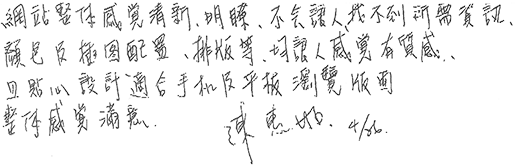 網站整体感覚清新、明瞭、不会讓人找不到所需資訊、
顏色及插圖配置、排版等、均讓人感覚有質感、
設計適合手机及平板瀏覽版面
整体感覚滿意.
4/26.